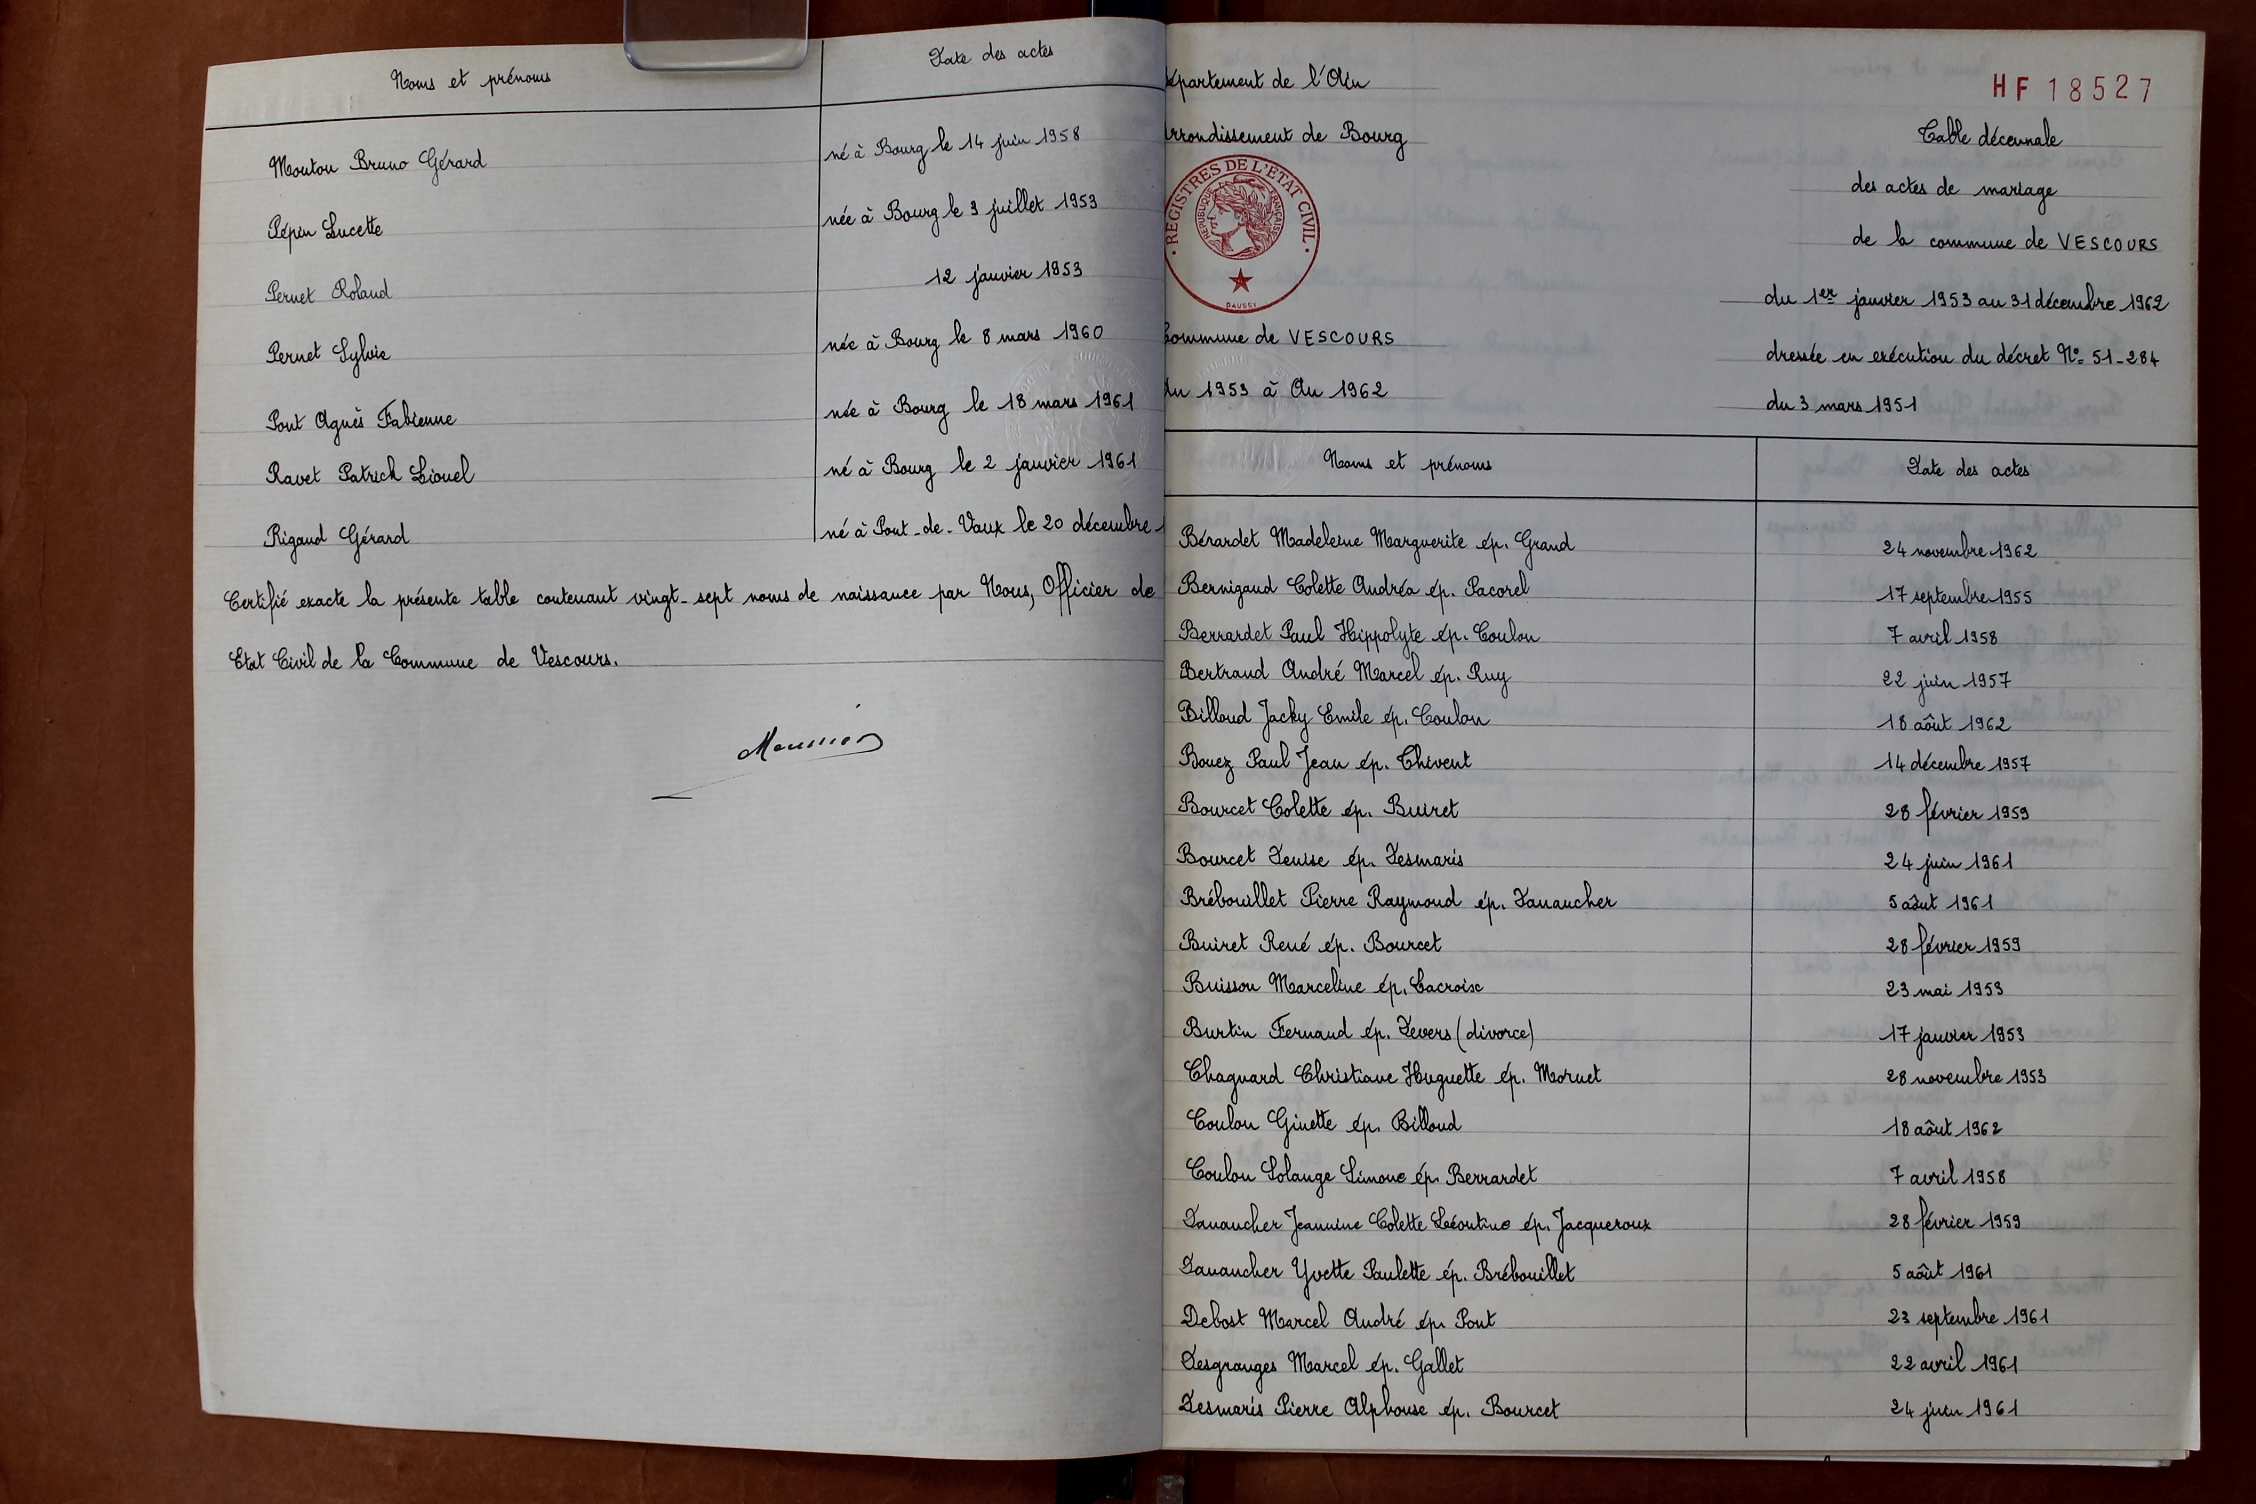 Noms et prénoms
Date des actes
Mouton Bruno Gérard
né à Bourg le 14 juin 1958
Pépin Lucette
née à Bourg le 3 juillet 1953
Pernet Roland
12 janvier 1953
Pernet Sylvie
née à Bourg le 8 mars 1960
Pont Agnès Fabienne
née à Bourg le 18 mars 1961
Ravet Patrick Lionel
né à Bourg le 2 janvier 1961
Rigaud Gérard
né à Pont-de-Vaux le 20 décembre
Certifié exacte la présente table contenant vingt-sept noms de naissance par Nous, Officier de
Etat Civil de la Commune de Vescours.
Meunier
épartement de l'Ain
HF 18527
rrondissement de Bourg
REGISTRES DE L'ETAT CIVIL
REPUBLIQUE FRANÇAISE
DAUSSY
ommune de VESCOURS
An 1953 à An 1962
Table décennale
des actes de mariage
de la commune de VESCOURS
du 1er janvier 1953 au 31 décembre 1962
dressée en exécution du décret N° 51-284
du 3 mars 1951
Noms et prénoms
Date des actes
Bérardet Madeleine Marguerite ép. Grand
24 novembre 1962
Bernigaud Colette Andréa ép. Pacorel
17 septembre 1955
Berrardet Paul Hippolyte ép. Coulon
7 avril 1958
Bertrand André Marcel ép. Ruy
22 juin 1957
Billoud Jacky Emile ép. Coulon
18 aôut 1962
Bouez Paul Jean ép. Chivent
14 décembre 1957
Bourcet Colette ép. Buiret
28 février 1959
Bourcet Denise ép. Desmaris
24 juin 1961
Brébouillet Pierre Raymond ép. Danancher
5 aôut 1961
Buiret René ép. Bourcet
28 février 1959
Buisson Marceline ép. Lacroix
23 mai 1959
Burtin Fernand ép. Devers (divorce)
17 janvier 1953
Chagnard Christiane Huguette ép. Mornet
28 novembre 1953
Coulon Ginette ép. Billoud
18 aôut 1962
Coulon Solange Simone ép. Berrardet
7 avril 1958
Danancher Jeannine Colette Léontine ép. Jacqueroux
28 février 1959
Danancher Yvette Paulette ép. Brébouillet
5 aôut 1961
Debost Marcel André ép. Pont
23 septembre 1961
Desgranges Marcel ép. Gallet
22 avril 1961
Desmaris Pierre Alphonse ép. Bourcet
24 juin 1961